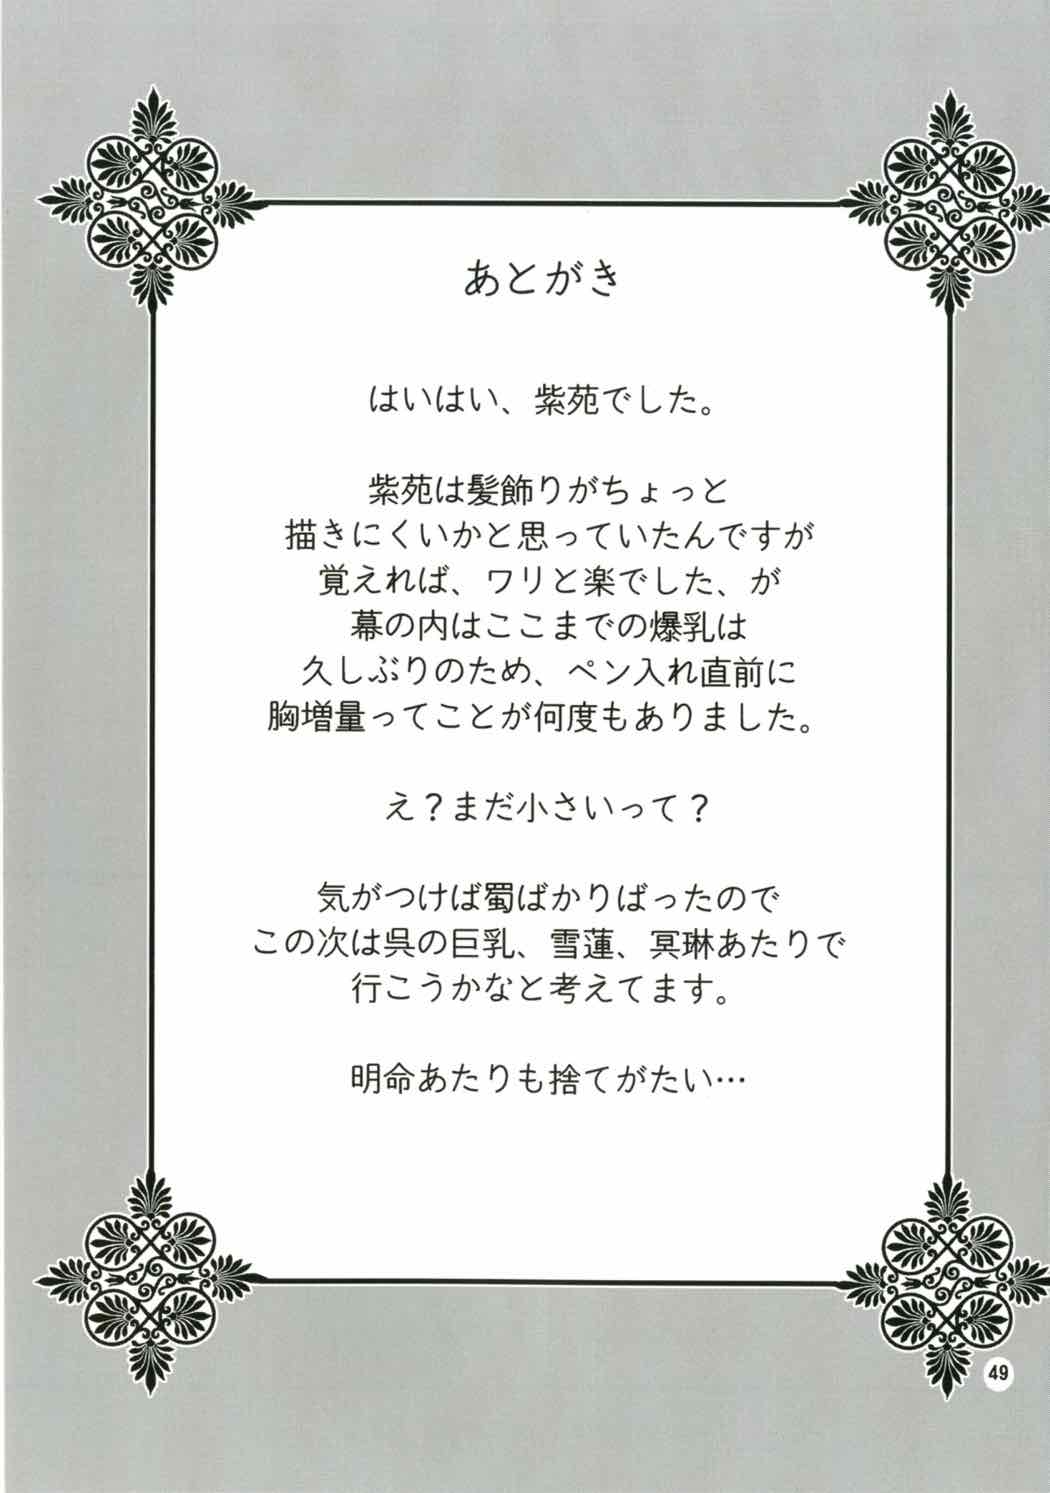 あとがき
はいはい、紫苑でした。
紫苑は髪飾りがちょっと
描きにくいかと思っていたんですが
覚えれば、ワリと楽でした、が
幕の内はここまでの爆乳は
久しぶりのため、ペン入れ直前に
胸増量ってことが何度もありました。
え？まだ小さいって？
気がつけば蜀ばかりばったので
この次は呉の巨乳、雪蓮、冥琳あたりで
行こうかなと考えてます。
明命あたりも捨てがたい…
49